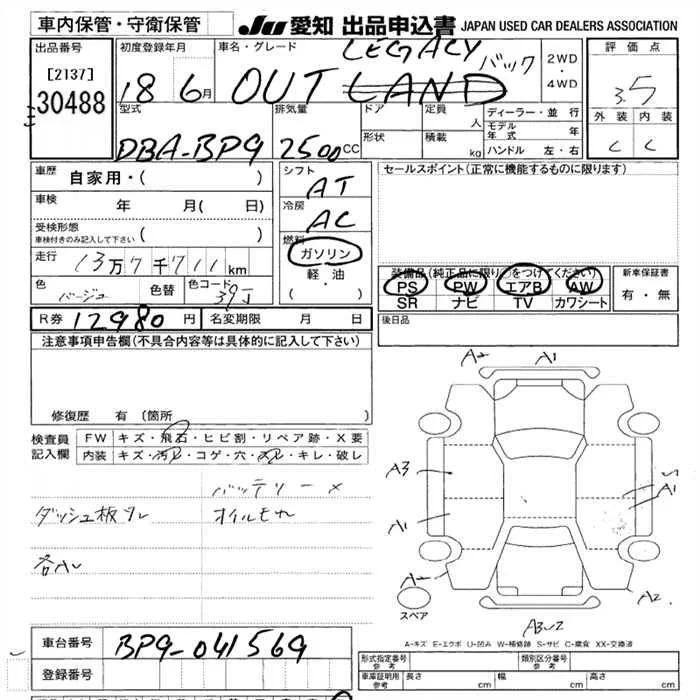 車内保管・守衛保管
JU 愛知 出品申込書 JAPAN USED CAR DEALERS ASSOCIATION
出品番号
[2137]
30488
初度登録年月
18 6月
車名・グレード
LEGACY
OUT LAND バック
2WD
・
4WD
評価点
3.5
外装 内装
C C
型式
DBA-BP9
排気量
2500CC
ドア
形状
定員
人
積載
kg
ディーラー・並行
モデル年式 年
ハンドル 左・右
車歴 自家用・( )
車検 年 月( 日)
受検形態
車検付きのみ記入して下さい ( )
走行 13万7千711km
色 ベージュ
色替
色コード 39J
シフト
AT
冷房
AC
燃料
ガソリン
軽・油
( ・ )
セールスポイント(正常に機能するものに限ります)
装備品(純正品に限り○をつけてください)
PS PW エアB AW
SR ナビ TV カワシート
新車保証書
有・無
後日品
R券 12980円
名変期限 月 日
注意事項申告欄(不具合内容等は具体的に記入して下さい)
修復歴 有(箇所 )
検査員
記入欄
FW キズ・飛石・ヒビ割・リペア跡・X要
内装 キズ・汚れ・コゲ・穴・スレ・キレ・破レ
バッテリー ×
ダッシュ板 ワレ オイルモレ
各AU
A2 A1
A3
A1
A1
A2
スペア
A-キズ E-エクボ U-凹み W-補修跡 S-サビ C-腐食 XX-交換済
車台番号 BP9-041569
登録番号
形式指定番号
参考
類別区分番号
参考
車庫証明用
参考
長さ cm
幅 cm
高さ cm